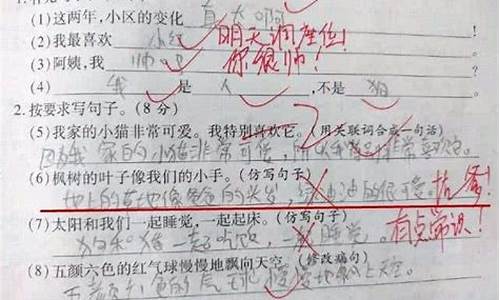 (1)这两年,小区的变化 真大啊
(2)我最喜欢 小红 明天调座位!
(3)阿姨,我 帅吧 你很帅!
(4) 我 是 人 ,不是 狗
2.按要求写句子。(8 分)
(5)我家的小猫非常可爱。我特别喜欢它。(用关联词合成一句话)
因为我家的小猫非常可爱,所以我 非常喜欢它。
(6)枫树的叶子像我们的小手。(仿写句子)
地上的草地像爸爸的头发,绿油油的很可爱。抗爹!
(7)太阳和我们一起睡觉,一起起床。(仿写句子)
狗和猪一起吃饭,一起睡觉。有点常识!
(8)五颜六色的红气球慢慢地飘向天空。(修改病句)
五颜六色的气球慢慢地飘上天空。